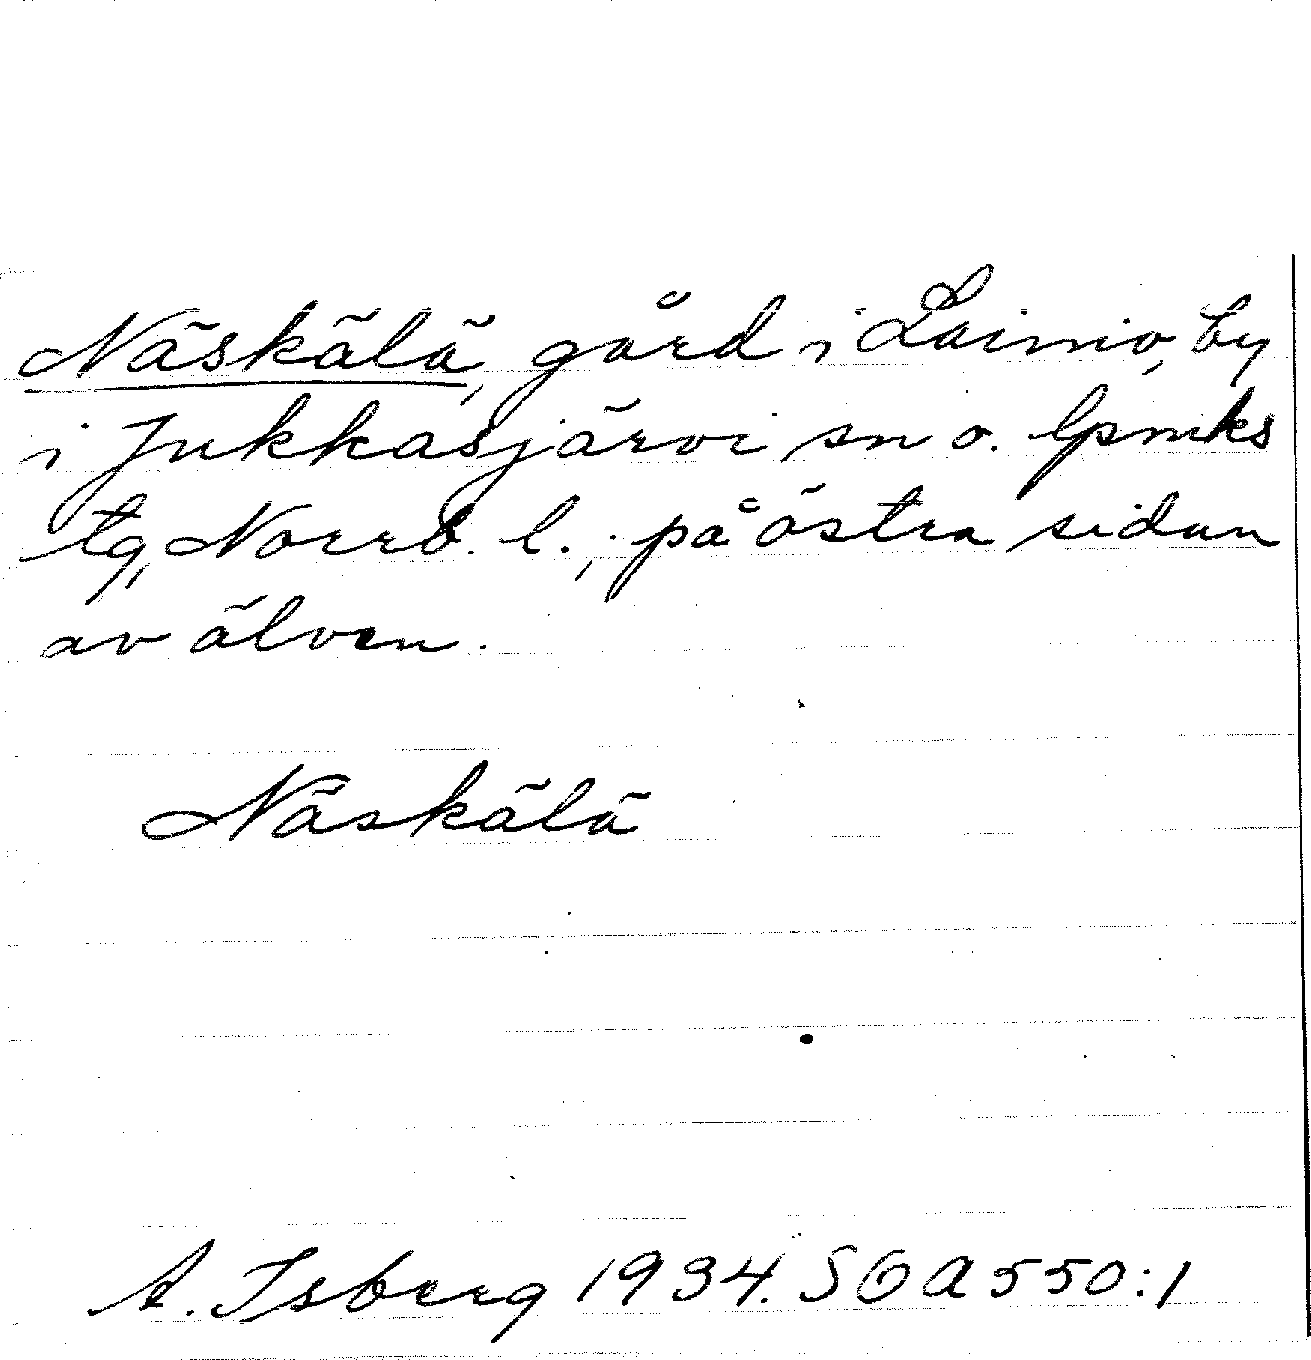 Näskälä, gård i Lainio, by
i Jukkasjärvi sn o. lpmks
tg, Norrb. l.; på östra sidan
av älven.
Näskälä
A. Isberg 1934. SOA 550:1